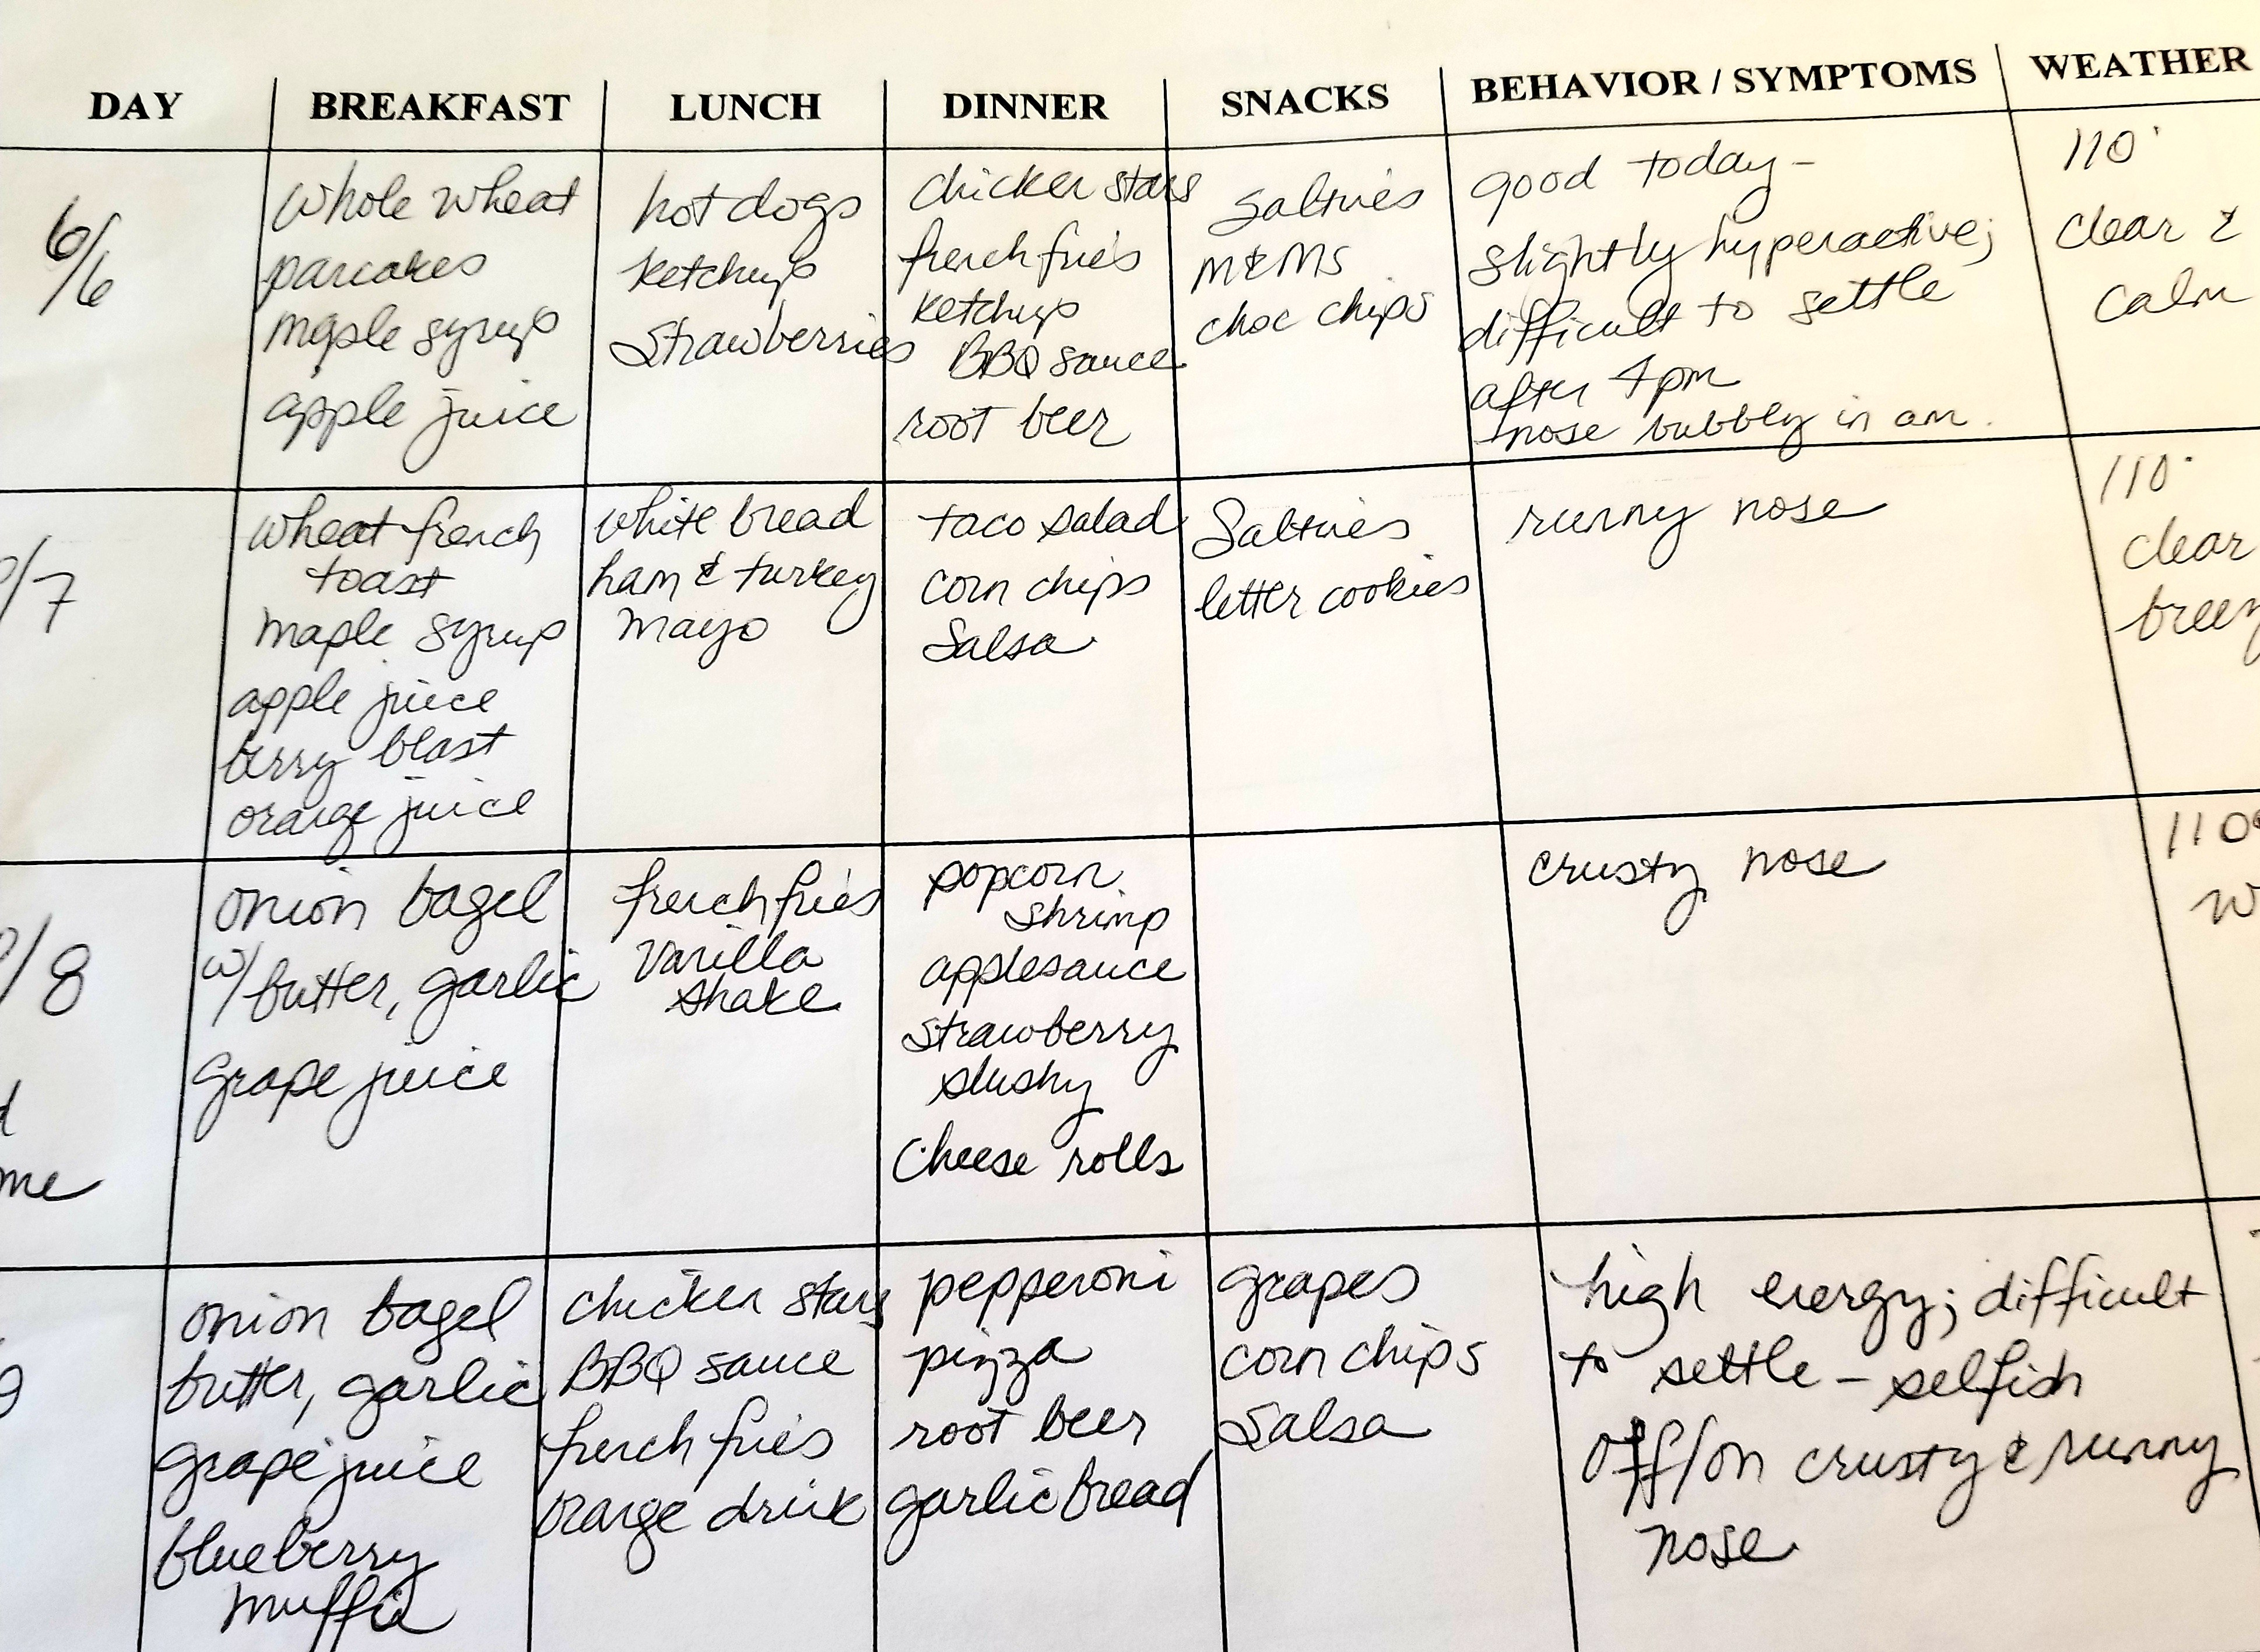 DAY BREAKFAST LUNCH DINNER SNACKS BEHAVIOR / SYMPTOMS WEATHER
6/6
whole wheat
pancakes
maple syrup
apple juice
hot dogs
ketchup
Strawberries
chicken stars
french fries
ketchup
BBQ sauce
root beer
Saltines
M&Ms
choc chips
good today -
slightly hyperactive;
difficult to settle
after 4pm
nose bubbly in am.
110°
clear &
calm
/7
wheat french
toast
maple syrup
apple juice
berry blast
orange juice
white bread
ham & turkey
mayo
taco salad
corn chips
Salsa
Saltines
letter cookies
runny nose
110°
clear
/8
me
onion bagel
w/butter, garlic
grape juice
french fries
Vanilla
shake
popcorn
shrimp
applesauce
strawberry
slushy
Cheese rolls
crusty nose
110°
9
onion bagel
butter, garlic
grape juice
blueberry
muffin
chicken stars
BBQ sauce
french fries
orange drink
pepperoni
pizza
root beer
garlic bread
grapes
corn chips
Salsa
high energy; difficult
to settle - selfish
off/on crusty & runny
nose